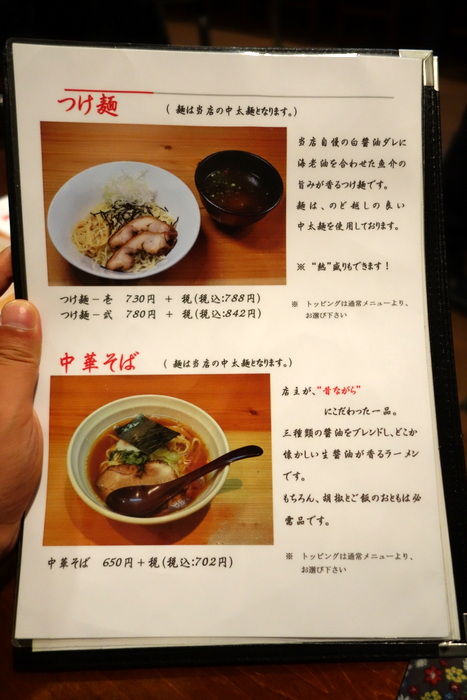 つけ麺 ( 麺は当店の中太麺となります。)
当店自慢の白醤油ダレに
海老油を合わせた魚介の
旨みが香るつけ麺です。
麺は、のど越しの良い
中太麺を使用しております。
※ “熱”盛りもできます！
つけ麺－壱 730円 + 税(税込:788円)
つけ麺－弐 780円 + 税(税込:842円)
※ トッピングは通常メニューより、
お選び下さい
中華そば ( 麺は当店の中太麺となります。)
店主が、“昔ながら”
にこだわった一品。
三種類の醤油をブレンドし、どこか
懐かしい生醤油が香るラーメン
です。
もちろん、胡椒とご飯のおともは必
需品です。
中華そば 650円+税(税込:702円)
※ トッピングは通常メニューより、
お選び下さい